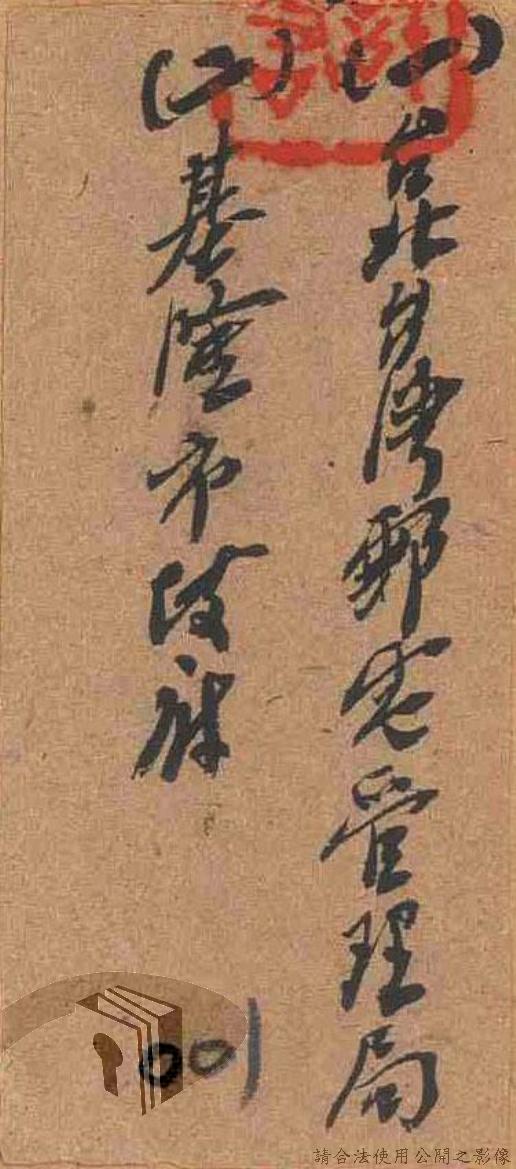 (一)台北台湾郵电管理局
(二)基隆市政府
001
請合法使用公開之影像